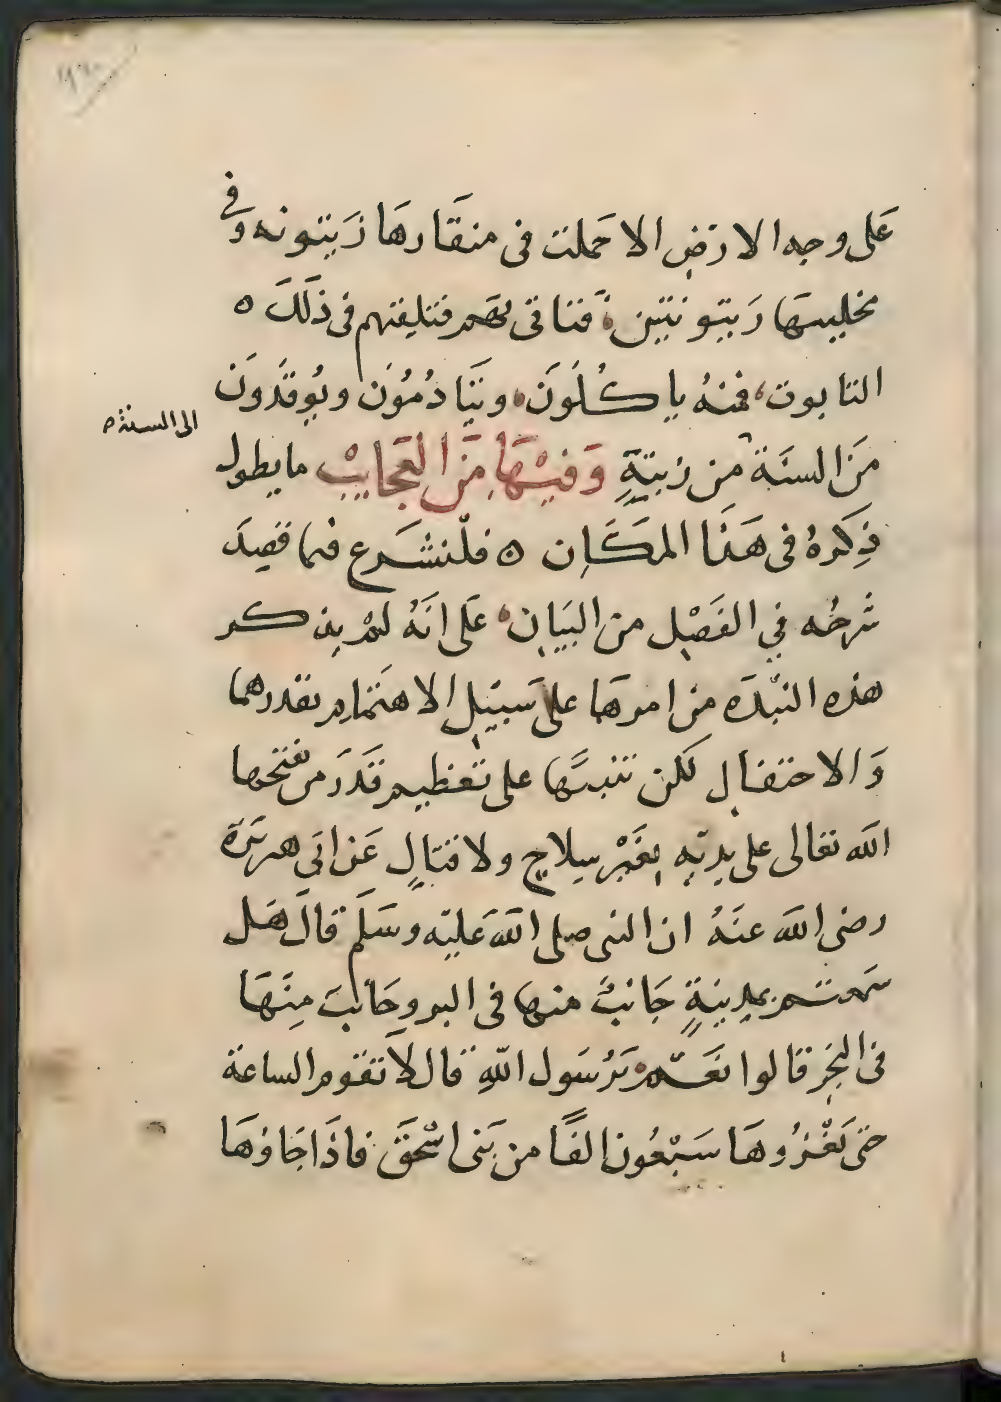 عَلى وجه الارَضِ الا حَملت فى منقَارهَا زَيتونه وَفى
مخليبَهَا زَيتونتين، فَتَاتى بهم فتلقيهم فى ذَلكَ ه
التابوت، فمنهُ ياكُلُونَ، وَيَتَادمُوُن ويُوقدَونَ
مَن السنَة من زيتةٍ وَفيْهَا مَن العَجايبْ ما يطول
الى السنة ه
ذِكرهُ فى هَذا المكَان ه فلنشَرع فيما قصِدَ
شرحُه فِي الفَصْل من البَيَان، عَلى انَهُ لمْ يذكر
هذه النّبذَه من امرهَا على سَبيْل الاهتمام بقدرها
وَالاحتفال لكن تنبيهًا على تعظيم قدَر من يفتحها
الله تعالى على يديْه بِغَيْر سِلاحٍ ولا قتالٍ عَن ابَى هريَرة
رضى الله عنهُ ان النبى صلى الله عَليْه وسَلم قالَ هَل
سَمعتم بمدينةٍ جَانبٌ منها فى البر وجَانبَ مِنهَا
فى البَحر قالوا نعَم يَرسَول اللهِ قال لا تقوم الساعة
حتى يَغْزُوهَا سَبْعُون الفًا من بَنى اسْحَقَ فاذَا جَاؤهَا